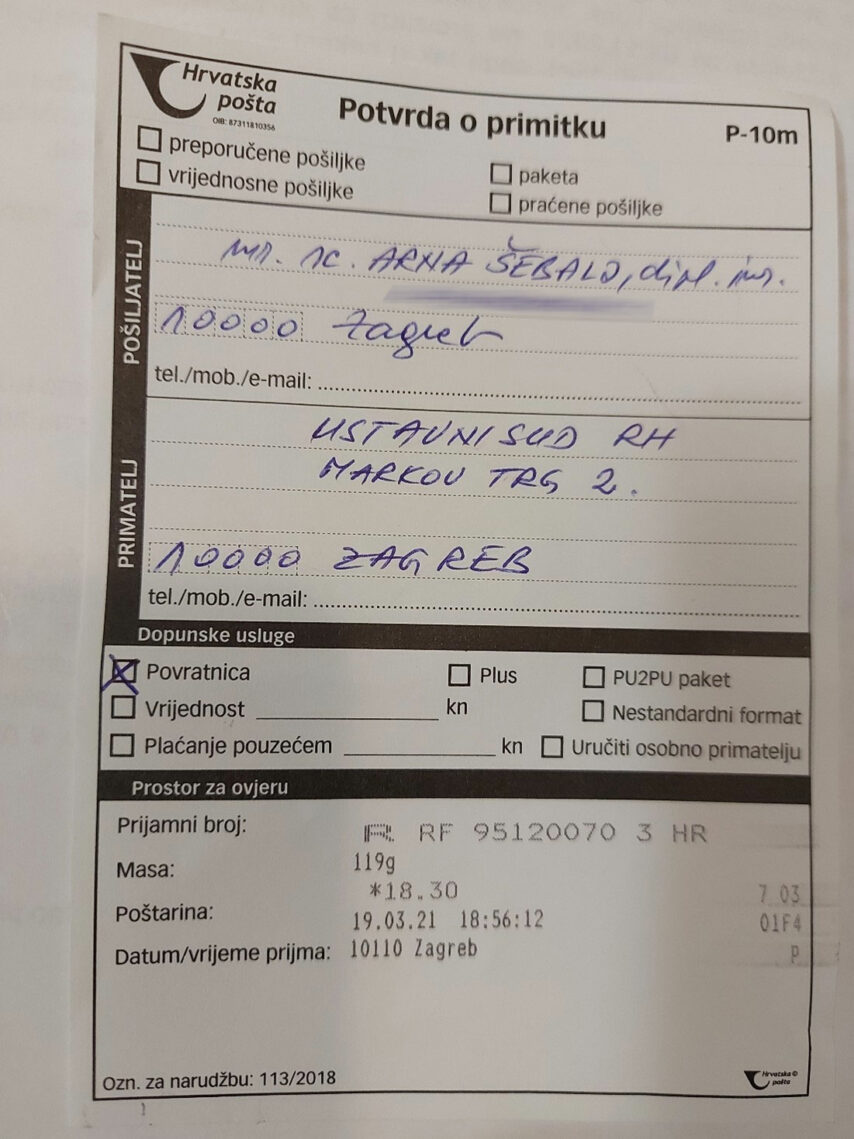 Hrvatska
pošta
OIB: 87311810356
Potvrda o primitku
P-10m
preporučene pošiljke
vrijednosne pošiljke
paketa
praćene pošiljke
POŠILJATELJ
mr. sc. ARNA ŠEBALJ, dipl. inž.
10000 Zagreb
tel./mob./e-mail:
PRIMATELJ
USTAVNI SUD RH
MARKOV TRG 2.
10000 ZAGREB
tel./mob./e-mail:
Dopunske usluge
Povratnica
Plus
PU2PU paket
Vrijednost kn
Nestandardni format
Plaćanje pouzećem kn
Uručiti osobno primatelju
Prostor za ovjeru
Prijamni broj: R RF 95120070 3 HR
Masa: 119g
*18.30 7 03
Poštarina: 19.03.21 18:56:12 01F4
Datum/vrijeme prijma: 10110 Zagreb P
Ozn. za narudžbu: 113/2018
Hrvatska
pošta